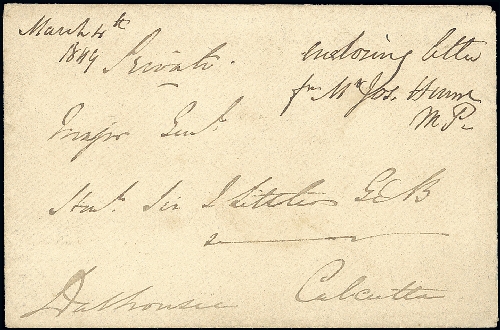 March 4th
1849
Private.
enclosing letter
fm Mr Jos. Hume
M P.
Major Genl.
Honl. Sir J Littler G C B
Dalhousie Calcutta